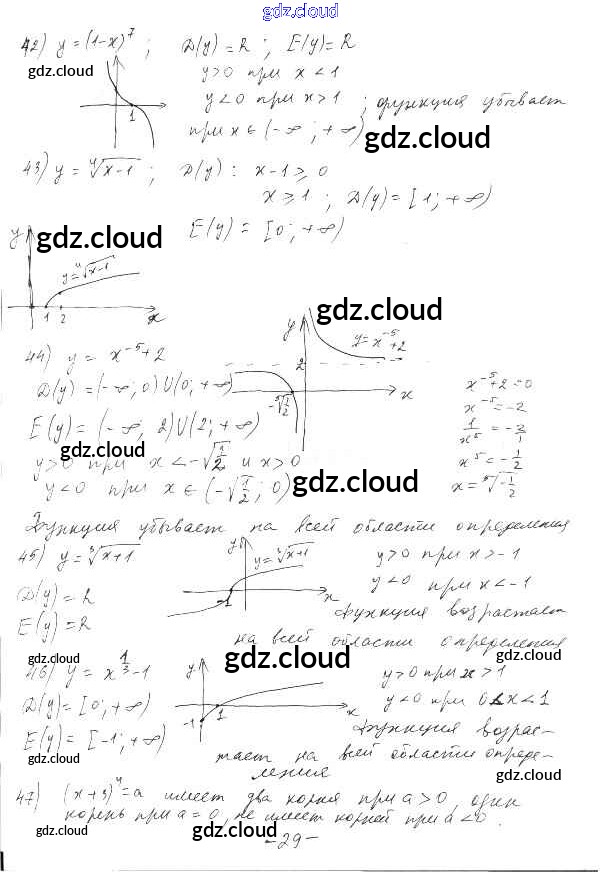 gdz.cloud
42) y = (1-x)^7 ; D(y) = R ; E(y) = R
gdz.cloud
y>0 при x<1
y<0 при x>1 ; функция убывает
1
при x ∈ (-∞; +∞)
gdz.cloud
43) y = ⁴√(x-1) ; D(y) : x-1 ≥ 0
x ≥ 1 ; D(y) = [1; +∞)
E(y) = [0; +∞)
gdz.cloud
y
y = ⁴√(x-1)
1 2 x
gdz.cloud
44) y = x^-5 + 2
y
y = x^-5 + 2
2
D(y) = (-∞; 0) U (0; +∞)
x
x^-5 + 2 = 0
E(y) = (-∞; 2) U (2; +∞)
-⁵√(1/2)
x^-5 = -2
gdz.cloud
1/x^5 = -2/1
y>0 при x < -√(1/2) и x>0
x^5 = -1/2
y<0 при x ∈ (-√(1/2); 0)
gdz.cloud
x = ⁵√(-1/2)
Функция убывает на всей области определения
45) y = ³√(x+1)
gdz.cloud
y
y = ³√(x+1)
y>0 при x>-1
D(y) = R
-1 x
y<0 при x<-1
E(y) = R
gdz.cloud
функция возрастает
на всей области определения
gdz.cloud
gdz.cloud
gdz.cloud
46) y = x^(1/3) - 1
y
y>0 при x>1
D(y) = [0; +∞)
-1 1 x
y<0 при 0<x<1
E(y) = [-1; +∞)
gdz.cloud
gdz.cloud
Функция возрас-
тает на всей области опреде-
ления
gdz.cloud
gdz.cloud
47) (x+3)^4 = a имеет два корня при a>0, один
корень при a=0, не имеет корней при a<0.
gdz.cloud
gdz.cloud
gdz.cloud
-29-